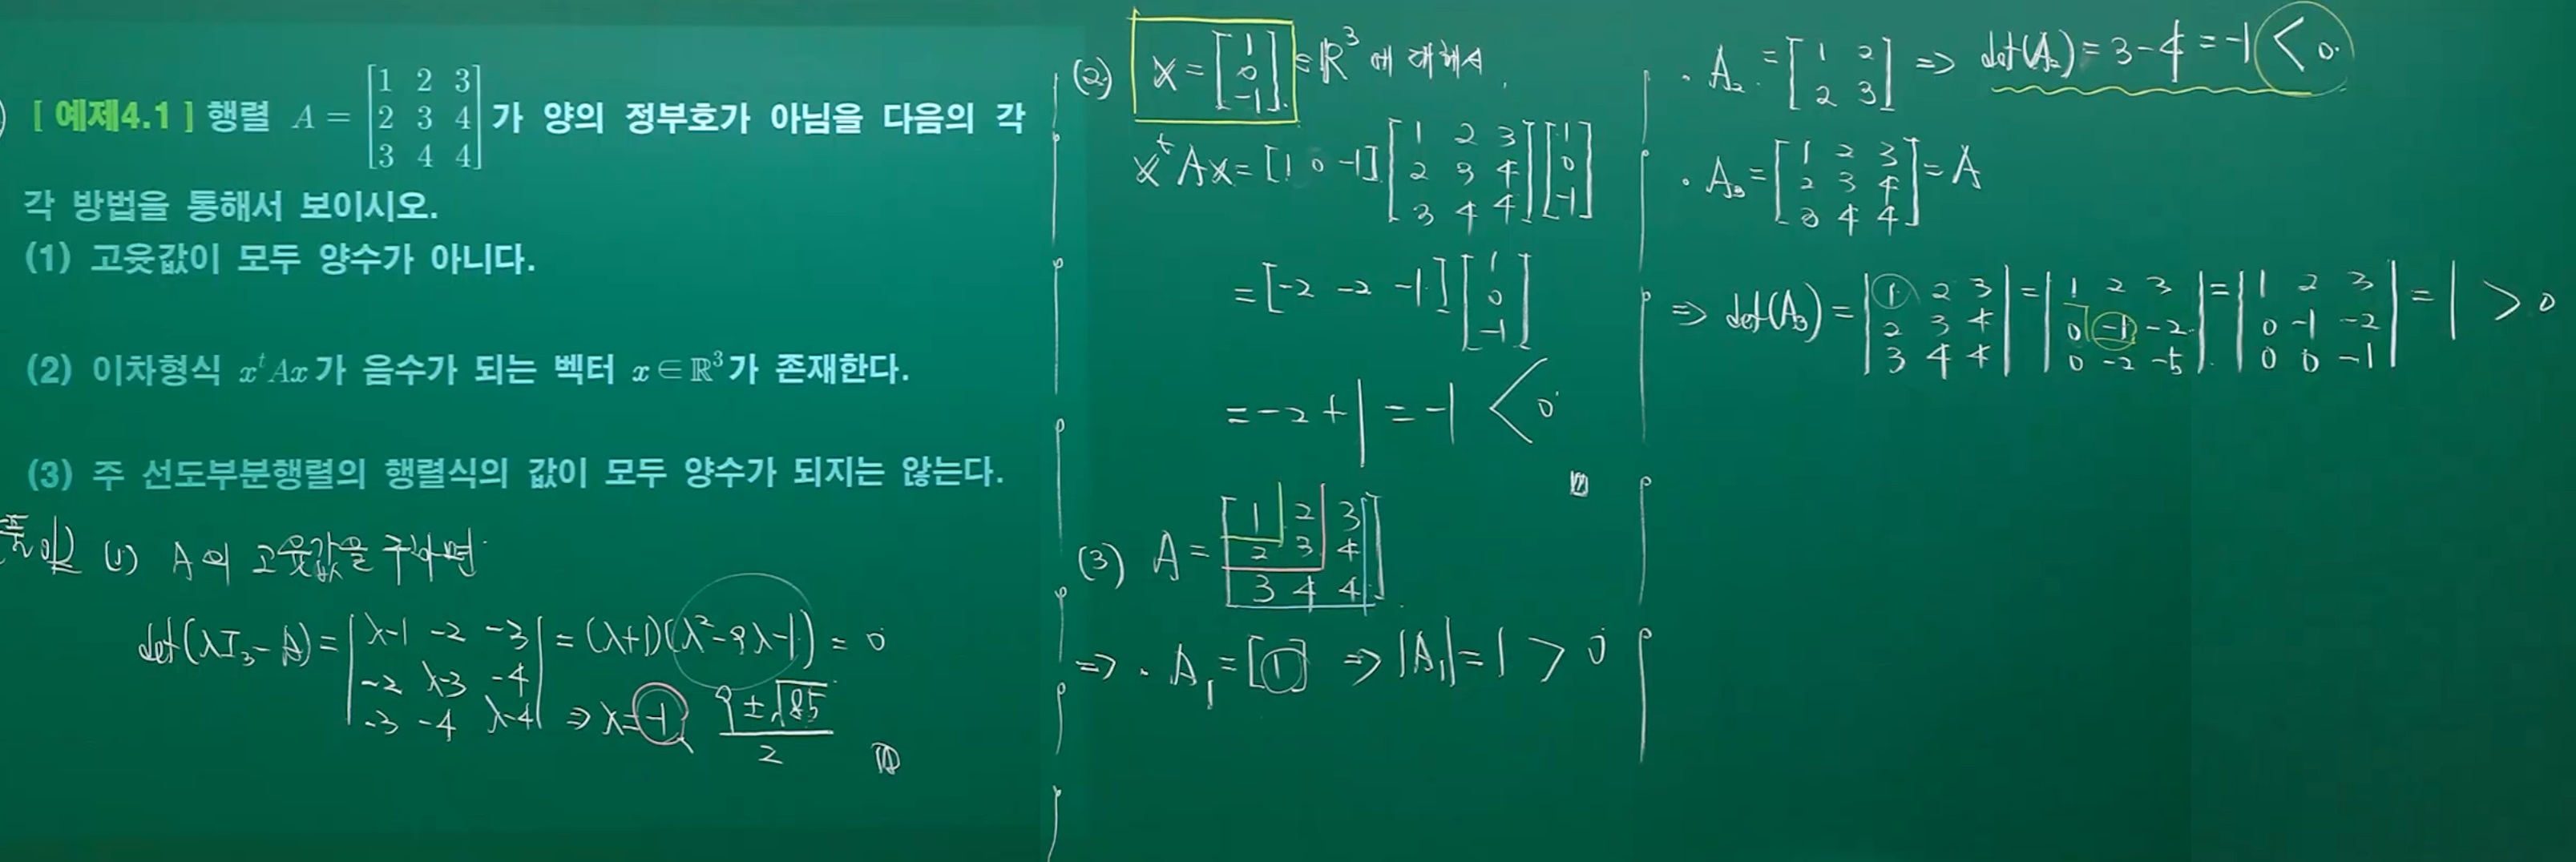 [ 예제4.1 ] 행렬 A = [1 2 3; 2 3 4; 3 4 4] 가 양의 정부호가 아님을 다음의 각
각 방법을 통해서 보이시오.
(1) 고윳값이 모두 양수가 아니다.
(2) 이차형식 xᵗAx가 음수가 되는 벡터 x∈ℝ³가 존재한다.
(3) 주 선도부분행렬의 행렬식의 값이 모두 양수가 되지는 않는다.
풀이) (1) A의 고윳값을 구하면
det(λI₃-A) = |λ-1 -2 -3; -2 λ-3 -4; -3 -4 λ-4| = (λ+1)(λ²-9λ-1) = 0
⇒ λ = -1, (9±√85)/2
(2) x = [1; 0; -1] ∈ ℝ³에 대해서,
xᵗAx = [1 0 -1][1 2 3; 2 3 4; 3 4 4][1; 0; -1]
= [-2 -2 -1][1; 0; -1]
= -2+1 = -1 < 0
(3) A = [1 2 3; 2 3 4; 3 4 4]
⇒ · A₁ = [1] ⇒ |A₁| = 1 > 0
· A₂ = [1 2; 2 3] ⇒ det(A₂) = 3-4 = -1 < 0
· A₃ = [1 2 3; 2 3 4; 3 4 4] = A
⇒ det(A₃) = |1 2 3; 2 3 4; 3 4 4| = |1 2 3; 0 -1 -2; 0 -2 -5| = |1 2 3; 0 -1 -2; 0 0 -1| = 1 > 0